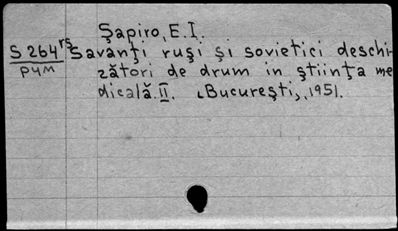 Șapiro, E.I.
S 264 rs Savanți ruși și sovietici deschi-
рум zători de drum in știința me
dicală. II. [București], 1951.